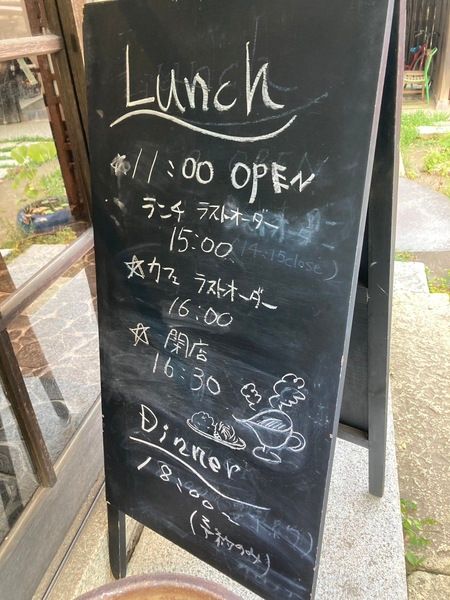 Lunch
☆11:00 OPEN
ランチ ラストオーダー
15:00 (14:15close)
☆カフェ ラストオーダー
16:00
☆ 閉店
16:30
Dinner
18:00~
(予約のみ)